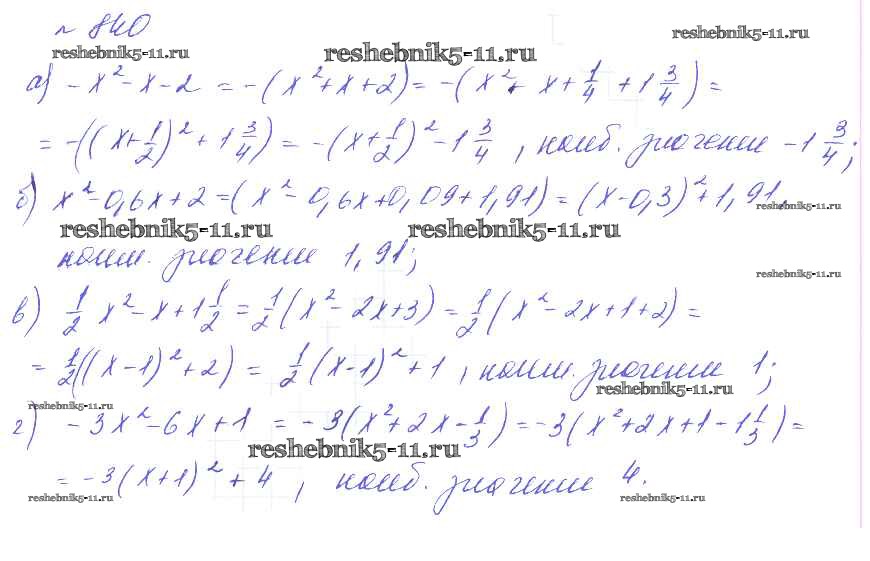 № 840
reshebnik5-11.ru reshebnik5-11.ru reshebnik5-11.ru
а) -x² - x - 2 = -(x² + x + 2) = -(x² + x + 1/4 + 1 3/4) =
= -((x + 1/2)² + 1 3/4) = -(x + 1/2)² - 1 3/4, наиб. значение -1 3/4;
б) x² - 0,6x + 2 = (x² - 0,6x + 0,09 + 1,91) = (x - 0,3)² + 1,91,
reshebnik5-11.ru
reshebnik5-11.ru reshebnik5-11.ru
наим. значение 1,91;
reshebnik5-11.ru
в) 1/2 x² - x + 1 1/2 = 1/2 (x² - 2x + 3) = 1/2 (x² - 2x + 1 + 2) =
= 1/2((x - 1)² + 2) = 1/2 (x - 1)² + 1, наим. значение 1;
reshebnik5-11.ru
reshebnik5-11.ru
г) -3x² - 6x + 1 = -3(x² + 2x - 1/3) = -3(x² + 2x + 1 - 1 1/3) =
reshebnik5-11.ru
= -3(x + 1)² + 4, наиб. значение 4.
reshebnik5-11.ru reshebnik5-11.ru